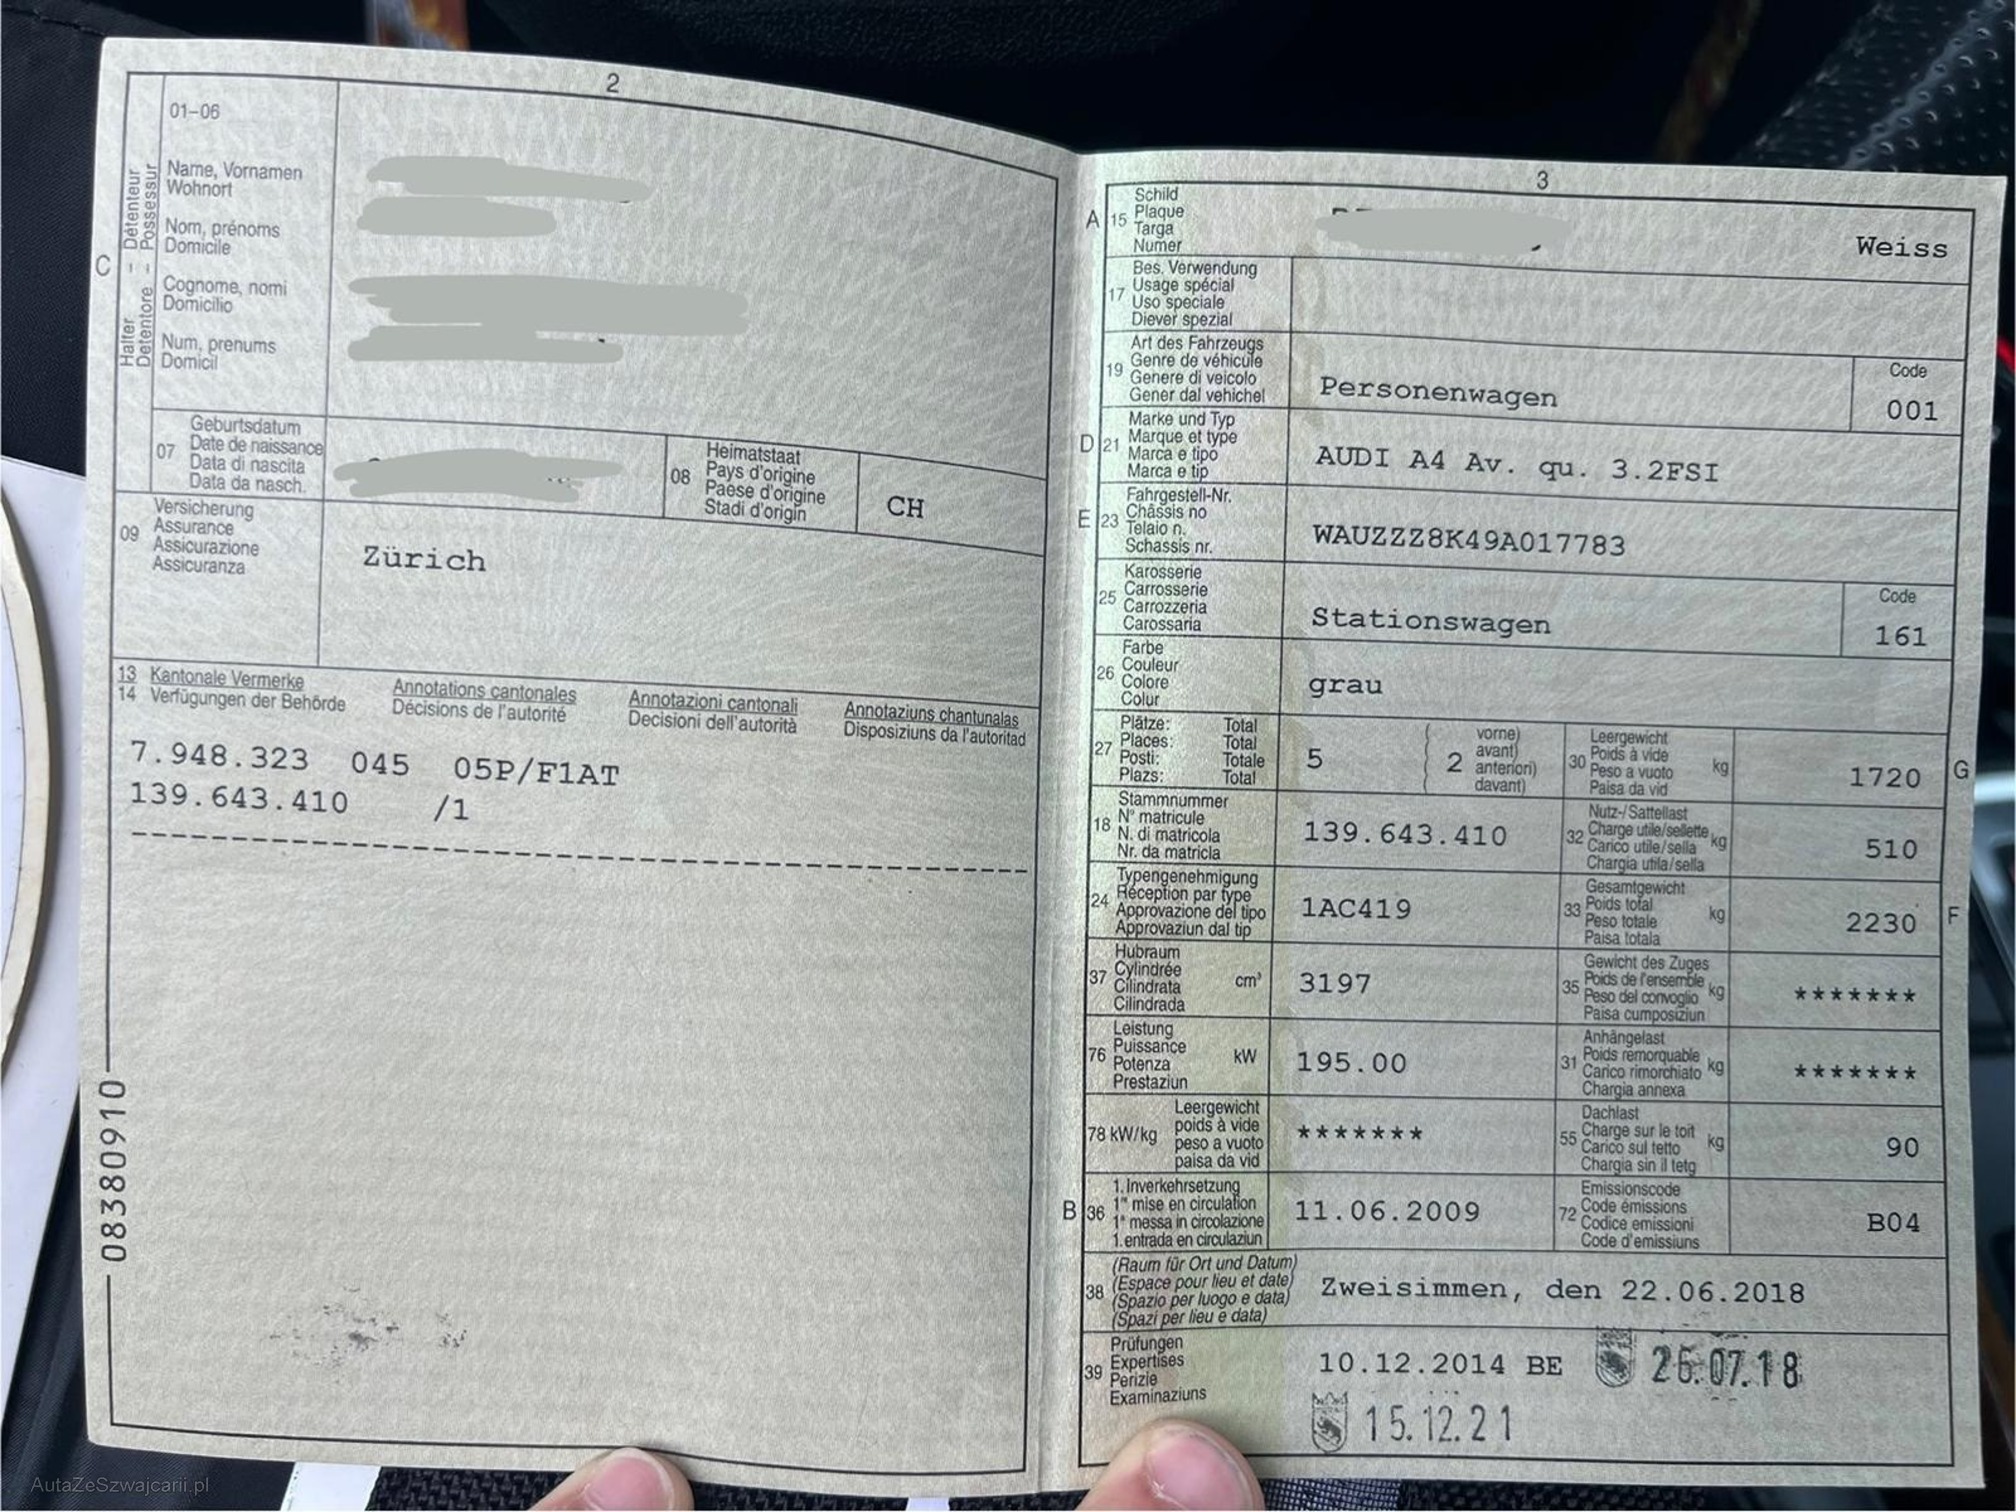 2
01-06
Halter - Détenteur
Detentore - Possessur
C
Name, Vornamen
Wohnort
Nom, prénoms
Domicile
Cognome, nomi
Domicilio
Num, prenums
Domicil
07
Geburtsdatum
Date de naissance
Data di nascita
Data da nasch.
08
Heimatstaat
Pays d'origine
Paese d'origine
Stadi d'origin
CH
09
Versicherung
Assurance
Assicurazione
Assicuranza
Zürich
13 Kantonale Vermerke Annotations cantonales Annotazioni cantonali Annotaziuns chantunalas
14 Verfügungen der Behörde Décisions de l'autorité Decisioni dell'autorità Disposiziuns da l'autoritad
7.948.323 045 05P/F1AT
139.643.410 /1
08380910
3
A 15
Schild
Plaque
Targa
Numer
Weiss
17
Bes. Verwendung
Usage spécial
Uso speciale
Diever spezial
19
Art des Fahrzeugs
Genre de véhicule
Genere di veicolo
Gener dal vehichel
Personenwagen
Code
001
D 21
Marke und Typ
Marque et type
Marca e tipo
Marca e tip
AUDI A4 Av. qu. 3.2FSI
E 23
Fahrgestell-Nr.
Châssis no
Telaio n.
Schassis nr.
WAUZZZ8K49A017783
25
Karosserie
Carrosserie
Carrozzeria
Carossaria
Stationswagen
Code
161
26
Farbe
Couleur
Colore
Colur
grau
27
Plätze: Total
Places: Total
Posti: Totale
Plazs: Total
5
2
vorne)
avant)
anteriori)
davant)
30
Leergewicht
Poids à vide
Peso a vuoto
Paisa da vid
kg
1720
G
18
Stammnummer
N° matricule
N. di matricola
Nr. da matricla
139.643.410
32
Nutz-/Sattellast
Charge utile/sellette
Carico utile/sella
Chargia utila/sella
kg
510
24
Typengenehmigung
Réception par type
Approvazione del tipo
Approvaziun dal tip
1AC419
33
Gesamtgewicht
Poids total
Peso totale
Paisa totala
kg
2230
F
37
Hubraum
Cylindrée
Cilindrata
Cilindrada
cm³
3197
35
Gewicht des Zuges
Poids de l'ensemble
Peso del convoglio
Paisa cumposiziun
kg
*******
76
Leistung
Puissance
Potenza
Prestaziun
kW
195.00
31
Anhängelast
Poids remorquable
Carico rimorchiato
Chargia annexa
kg
*******
78 kW/kg
Leergewicht
poids à vide
peso a vuoto
paisa da vid
*******
55
Dachlast
Charge sur le toit
Carico sul tetto
Chargia sin il tetg
kg
90
B 36
1. Inverkehrsetzung
1re mise en circulation
1a messa in circolazione
1. entrada en circulaziun
11.06.2009
72
Emissionscode
Code émissions
Codice emissioni
Code d'emissiuns
B04
38
(Raum für Ort und Datum)
(Espace pour lieu et date)
(Spazio per luogo e data)
(Spazi per lieu e data)
Zweisimmen, den 22.06.2018
39
Prüfungen
Expertises
Perizie
Examinaziuns
10.12.2014 BE
26.07.18
15.12.21
AutaZeSzwajcarii.pl